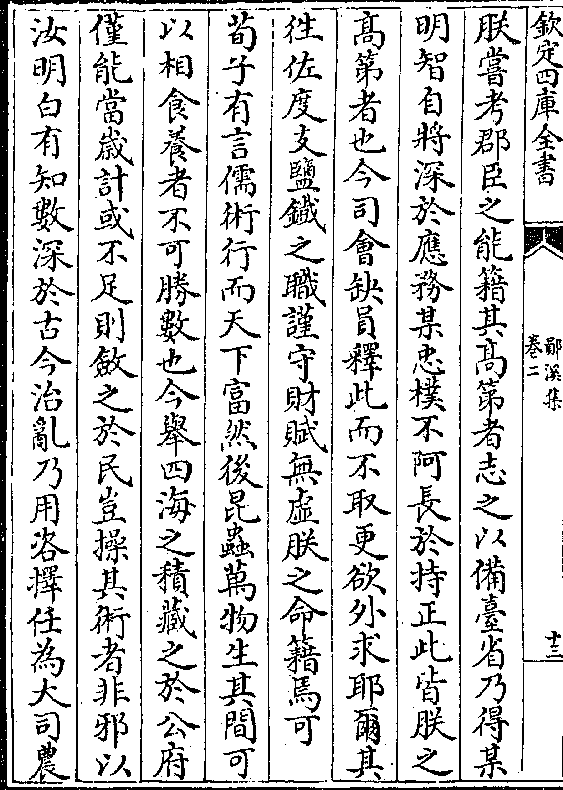 欽定四庫全書
鄖溪集
卷二
十三
朕嘗考郡臣之能籍其髙第者志之以備臺省乃得某
明智自將深於應務某忠樸不阿長於持正此皆朕之
髙第者也今司會缺員釋此而不取更欲外求耶爾其
徃佐度支鹽鐵之職謹守財賦無虛朕之命籍焉可
荀子有言儒術行而天下富然後昆蟲萬物生其間可
以相食養者不可勝數也今舉四海之積藏之於公府
僅能當嵗計或不足則斂之於民豈操其術者非邪以
汝明白有知數深於古今治亂乃用咨擇任為大司農